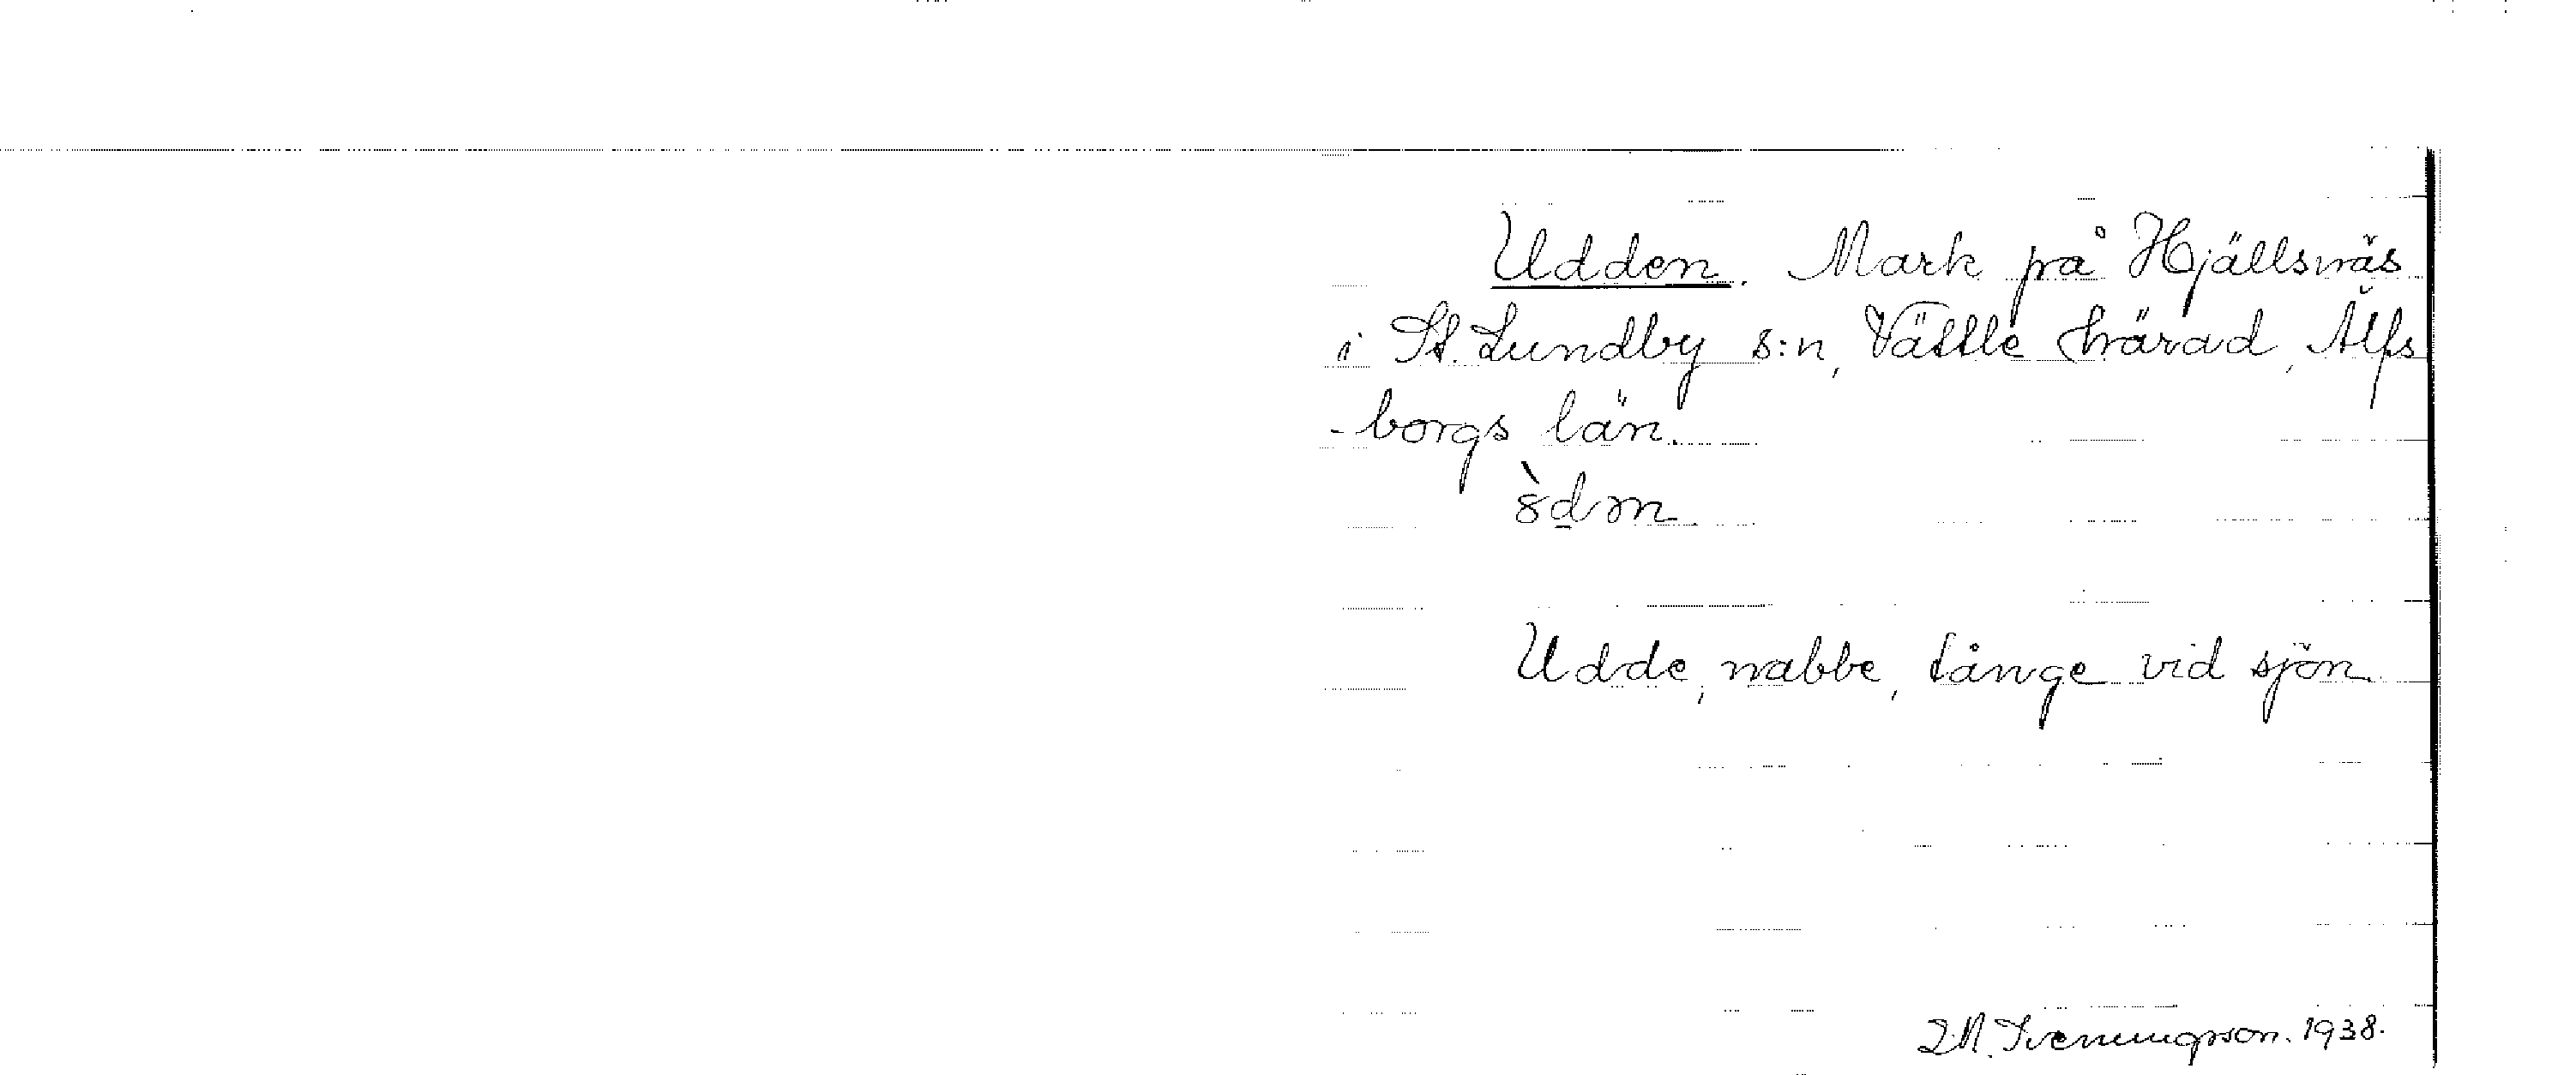 Udden. Mark på Hjällsnäs
i St. Lundby s:n, Vättle härad, Älfs
-borgs län.
Udde, nabbe, tånge vid sjön
Svenungsson. 1938.